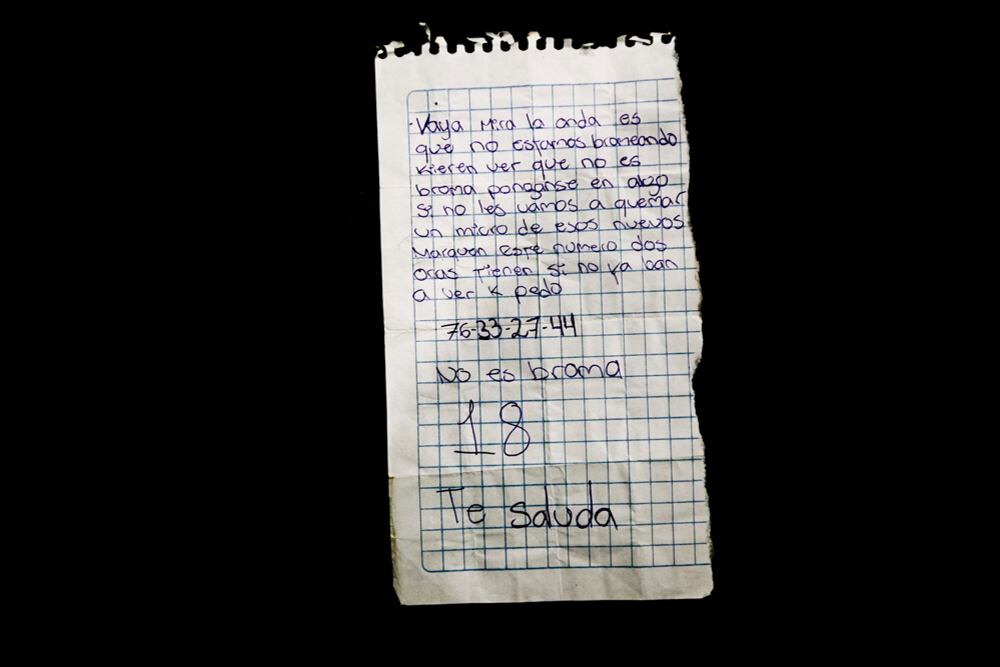 Vaya mira la onda es
que no estamos bromeando
kieren ver que no es
broma ponganse en algo
si no les vamos a quemar
un micro de esos nuevos
Marquen este numero dos
oras tienen si no ya ban
a ver k pedo
76-33-27-44
No es broma
18
Te saluda